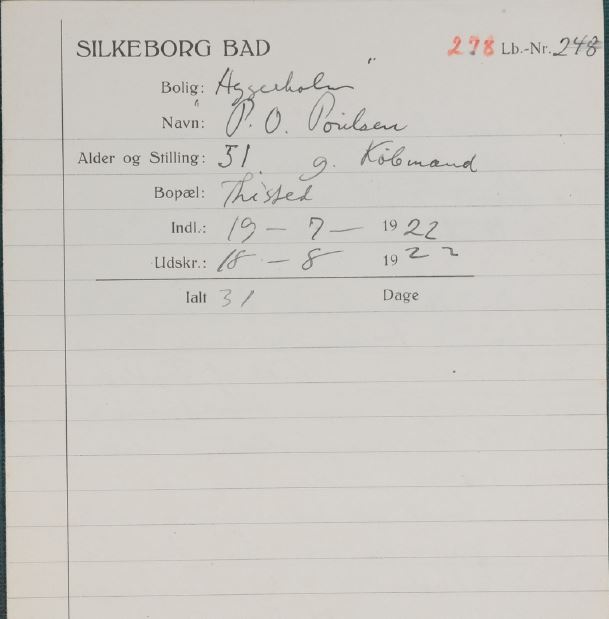 SILKEBORG BAD 278 Lb.-Nr. 248
Bolig: Aggerholm "
" Navn: P. O. Poulsen
Alder og Stilling: 51. g. Købmand
Bopæl: Thisted
Indl.: 19 - 7 - 1922
Udskr.: 18 - 8 1922
Ialt 31 Dage